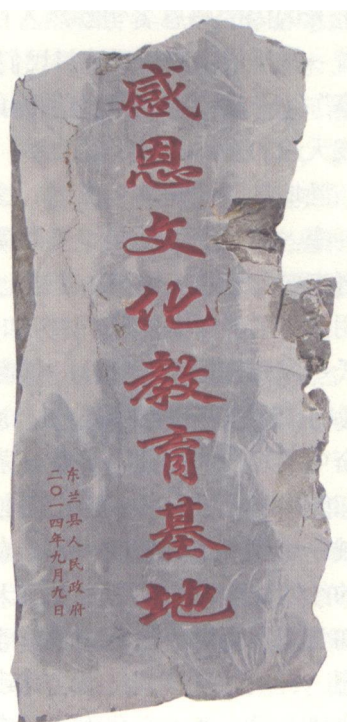 感恩文化教育基地
东兰县人民政府
二〇一四年九月九日